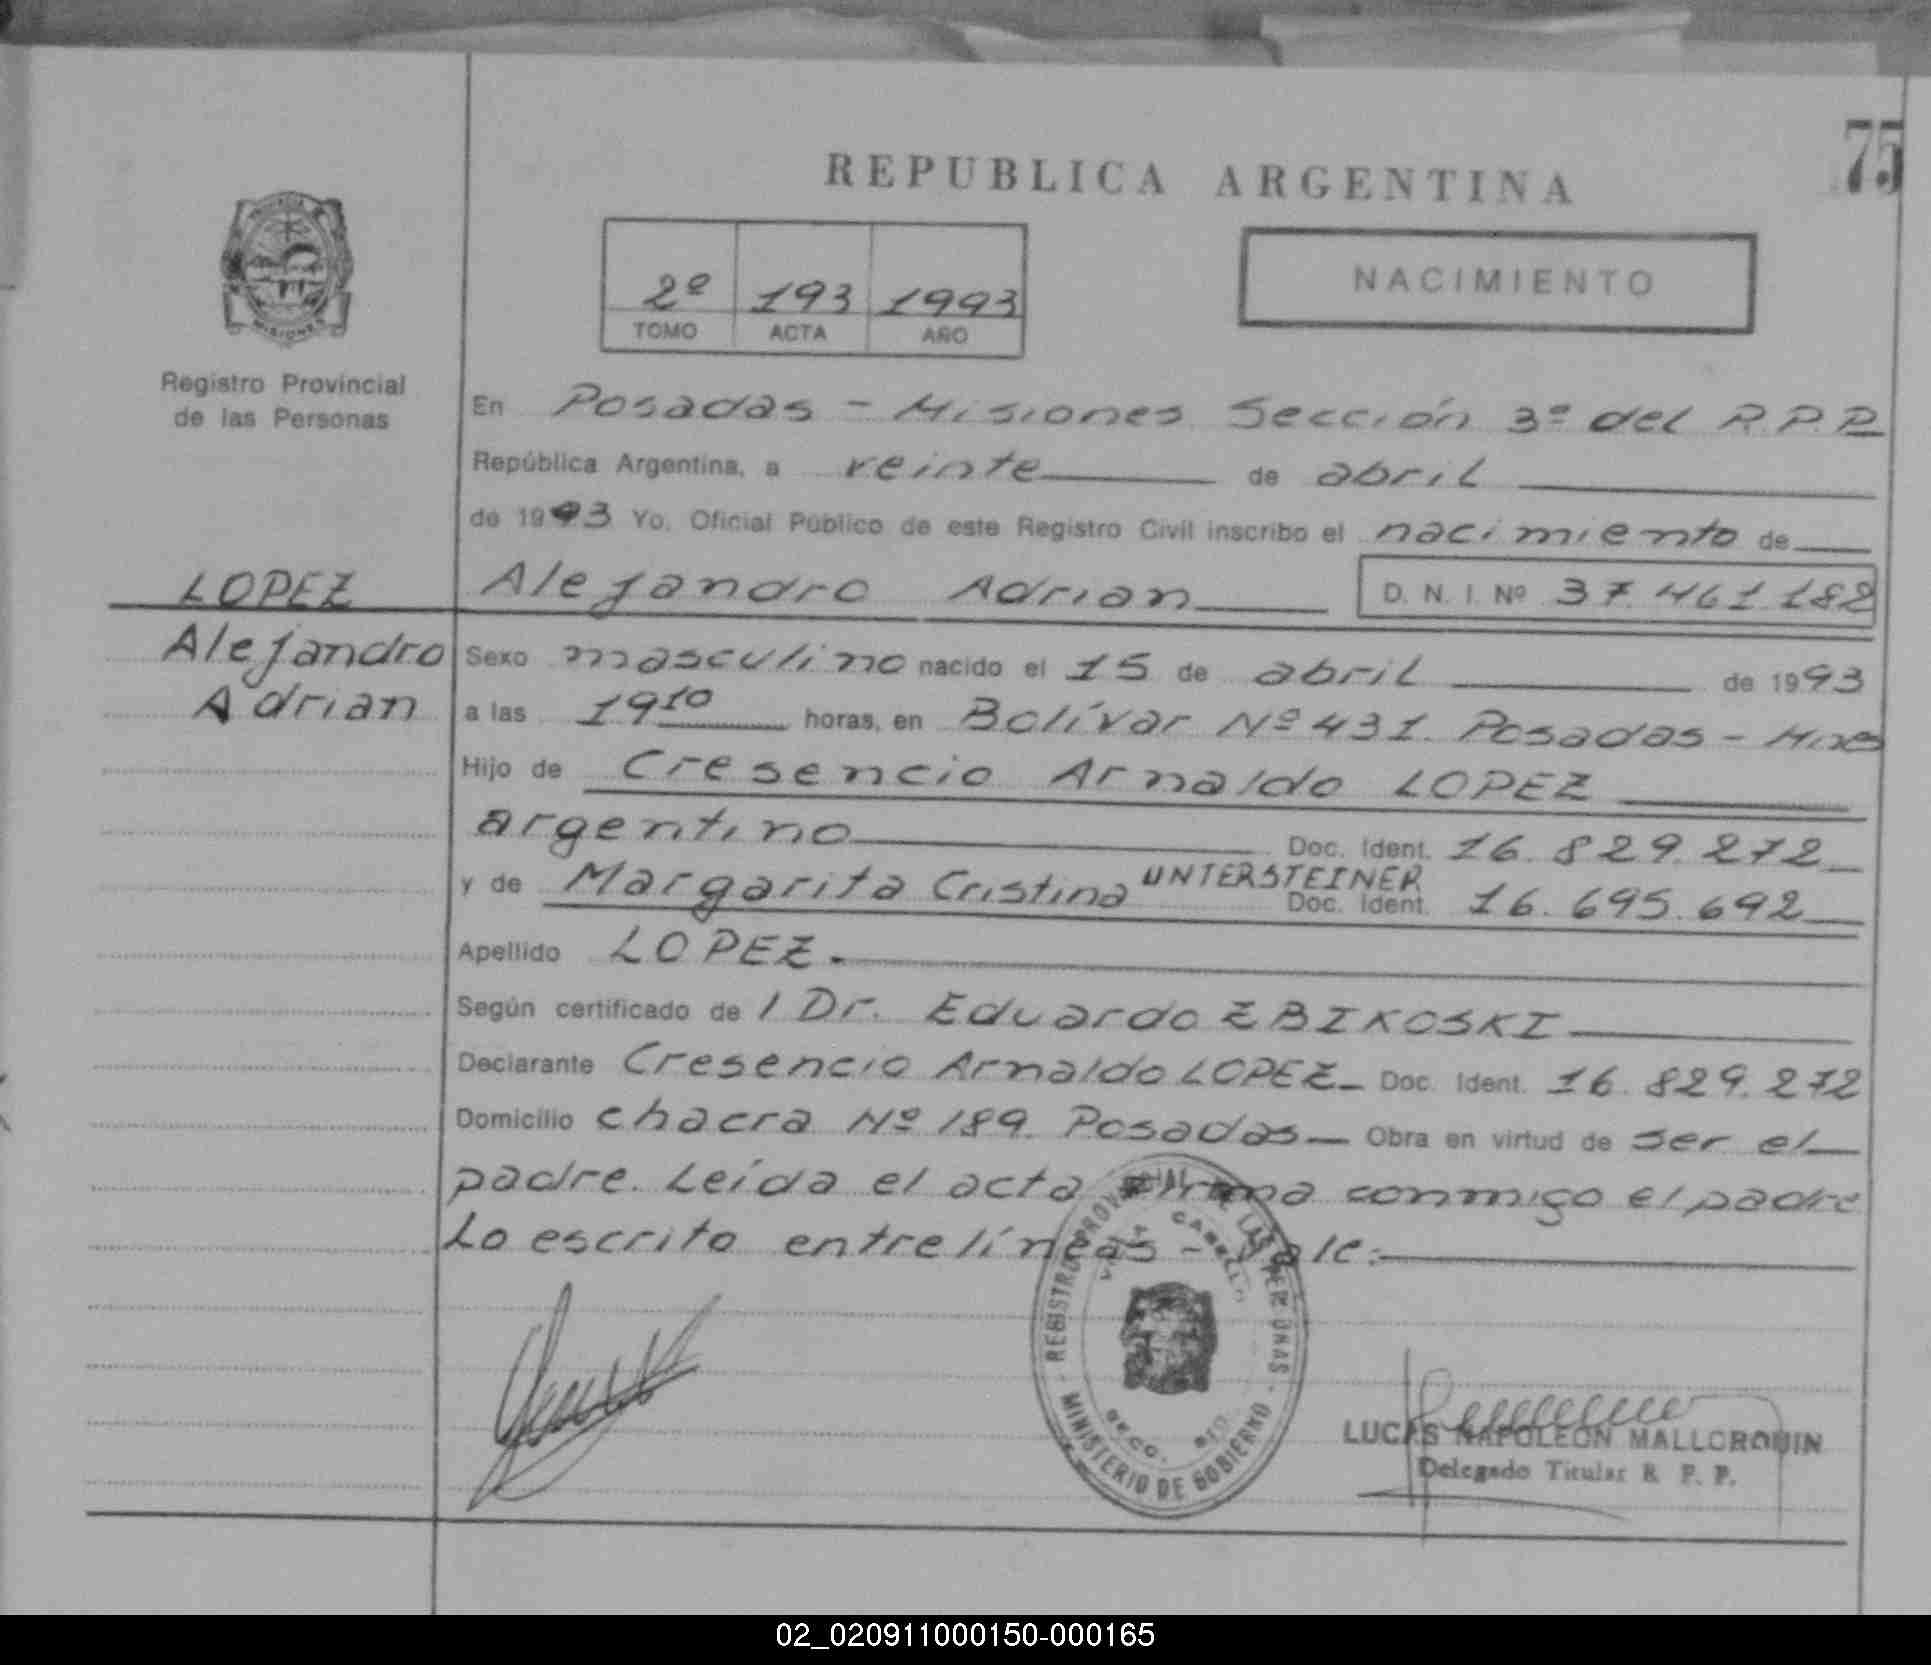 75
REPUBLICA ARGENTINA
PROVINCIA
MISIONES
Registro Provincial
de las Personas
2º 193 1993
TOMO ACTA AÑO
NACIMIENTO
En Posadas - Misiones Sección 3ª del R.P.P.
República Argentina, a veinte de abril
de 1993 Yo, Oficial Público de este Registro Civil inscribo el nacimiento de
LOPEZ
Alejandro
Adrian
Alejandro Adrian D. N. I. Nº 37.461.182
Sexo masculino nacido el 15 de abril de 1993
a las 19 10 horas, en Bolívar Nº 431. Posadas - Mnes
Hijo de Cresencio Arnaldo LOPEZ
argentino Doc. Ident. 16.829.272
y de Margarita Cristina UNTERSTEINER Doc. Ident. 16.695.692
Apellido LOPEZ.
Según certificado de l Dr. Eduardo ZBIKOSKI
Declarante Cresencio Arnaldo LOPEZ Doc. Ident. 16.829.272
Domicilio chacra Nº 189. Posadas Obra en virtud de ser el
padre. Leída el acta firma conmigo el padre
Lo escrito entrelíneas - Vale.
REGISTRO PROVINCIAL DE LAS PERSONAS
VILLA CABELLO
MINISTERIO DE GOBIERNO
LUCAS NAPOLEON MALLORQUIN
Delegado Titular R. P. P.
02_020911000150-000165